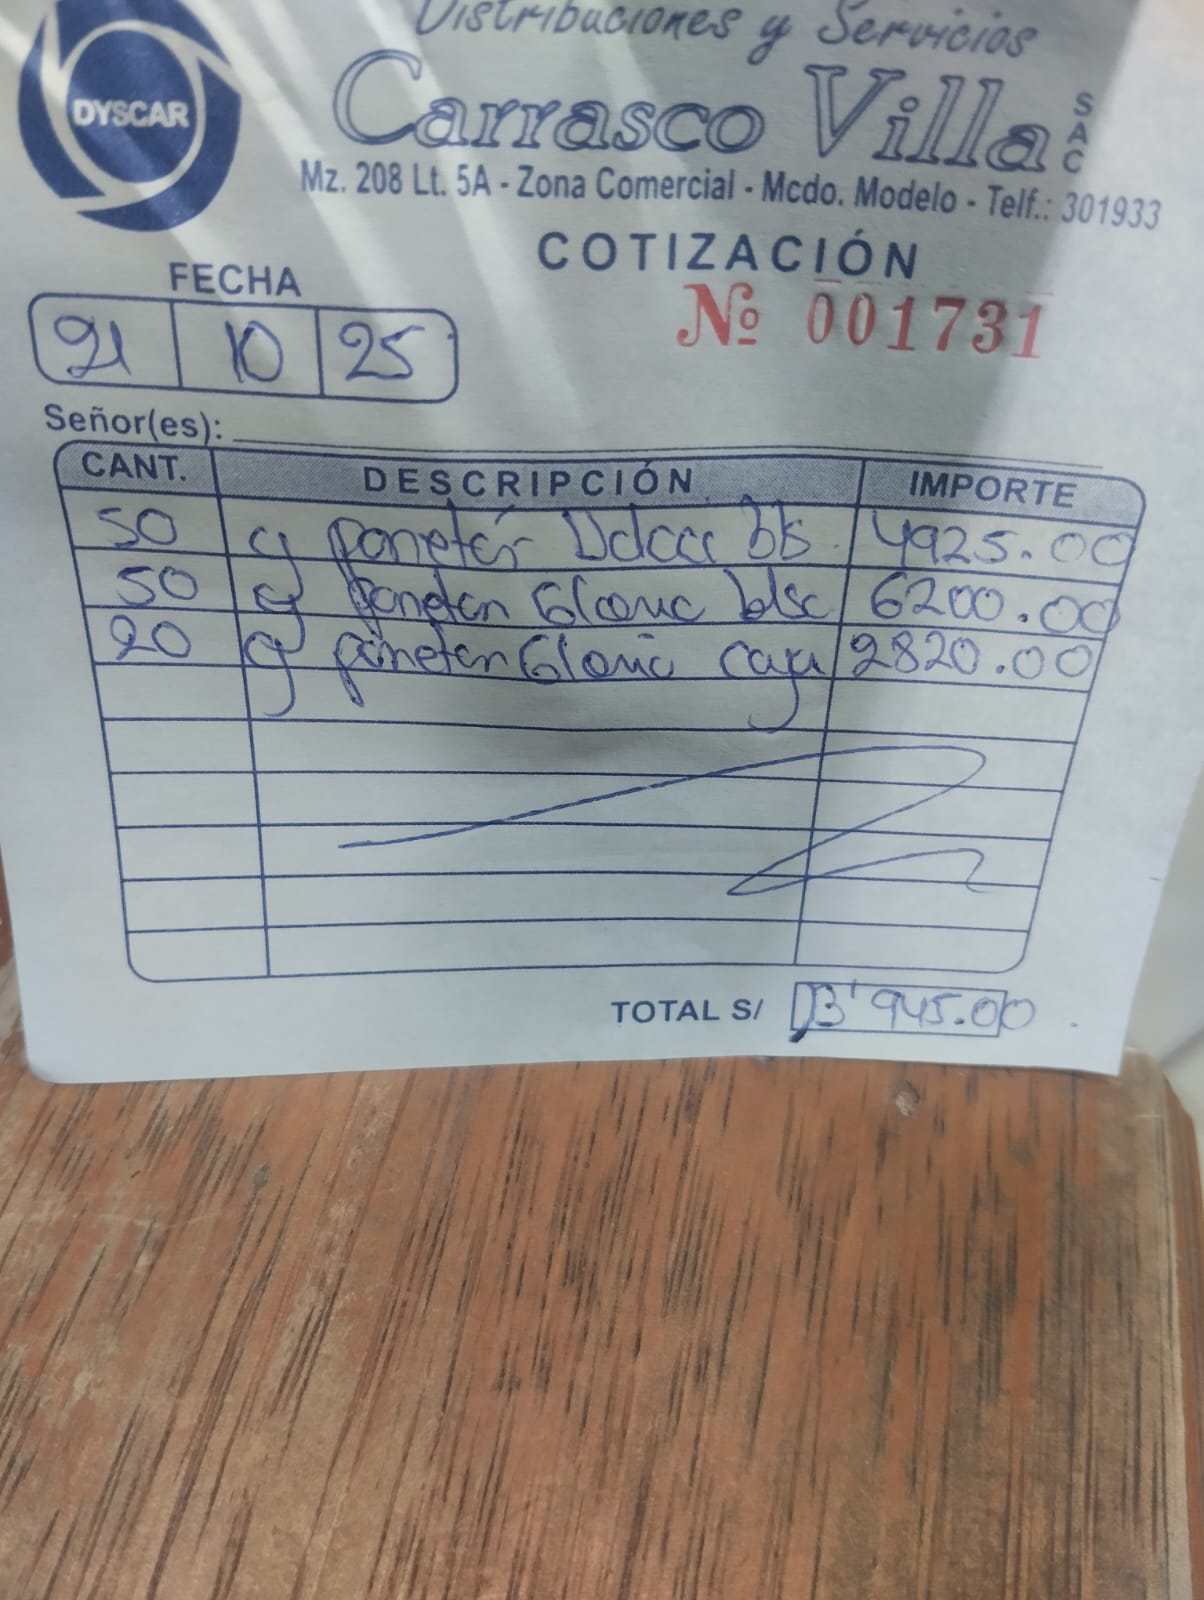 Distribuciones y Servicios
DYSCAR
Carrasco Villa SAC
Mz. 208 Lt. 5A - Zona Comercial - Mcdo. Modelo - Telf.: 301933
COTIZACIÓN
FECHA
Nº 001731
21 10 25
Señor(es):
CANT. DESCRIPCIÓN IMPORTE
50 cj paneton bls 4925.00
50 cj paneton Gloria blsc 6200.00
20 cj paneton Gloria caja 2820.00
TOTAL S/ 13'945.00